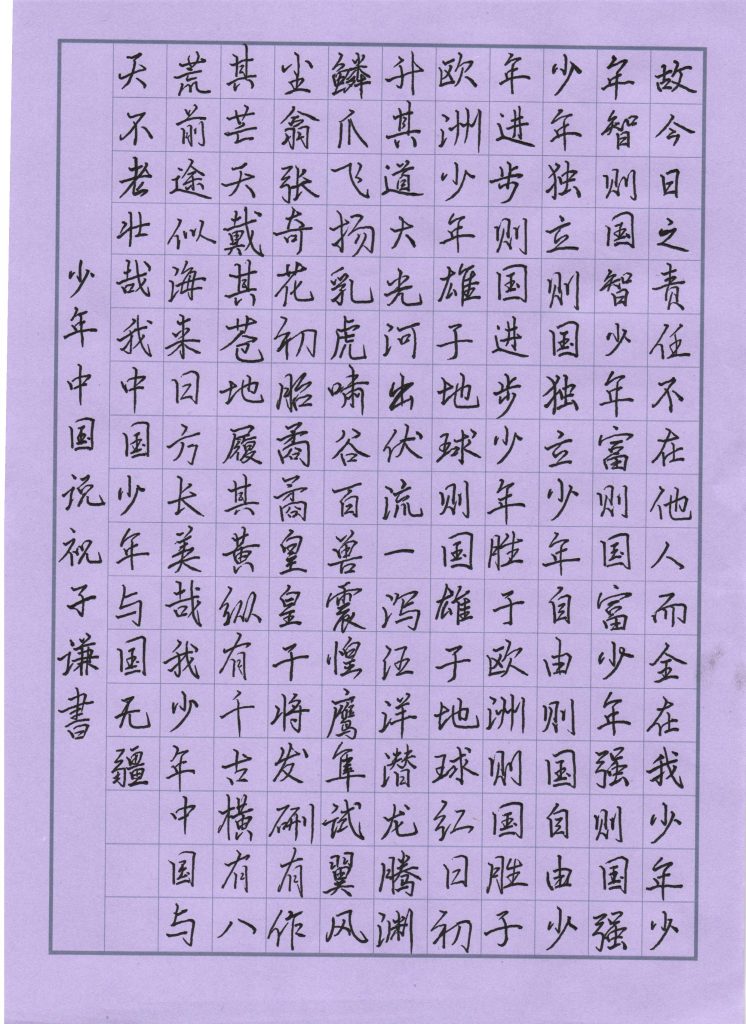 故今日之责任不在他人而全在我少年少
年智则国智少年富则国富少年强则国强
少年独立则国独立少年自由则国自由少
年进步则国进步少年胜于欧洲则国胜于
欧洲少年雄于地球则国雄于地球红日初
升其道大光河出伏流一泻汪洋潜龙腾渊
鳞爪飞扬乳虎啸谷百兽震惶鹰隼试翼风
尘翕张奇花初胎矞矞皇皇干将发硎有作
其芒天戴其苍地履其黄纵有千古横有八
荒前途似海来日方长美哉我少年中国与
天不老壮哉我中国少年与国无疆
少年中国说祝子谦書